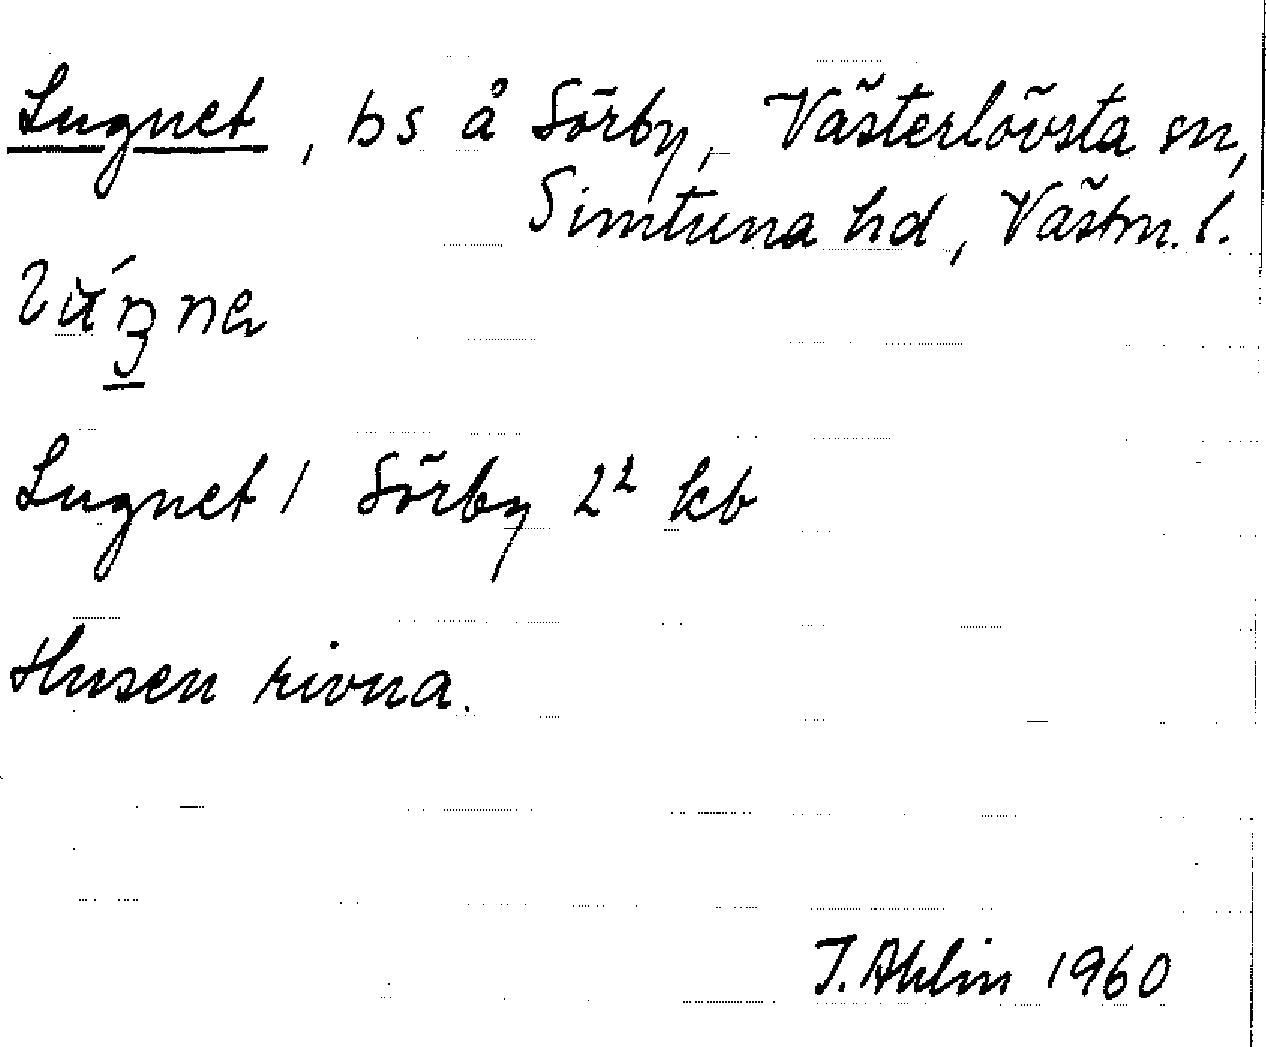 Lugnet, bs å Sörby, Västerlövsta sn,
Simtuna hd, Västm. l.
Lugnet 1 Sörby 2² kb
Husen rivna.
J. Ahlin 1960